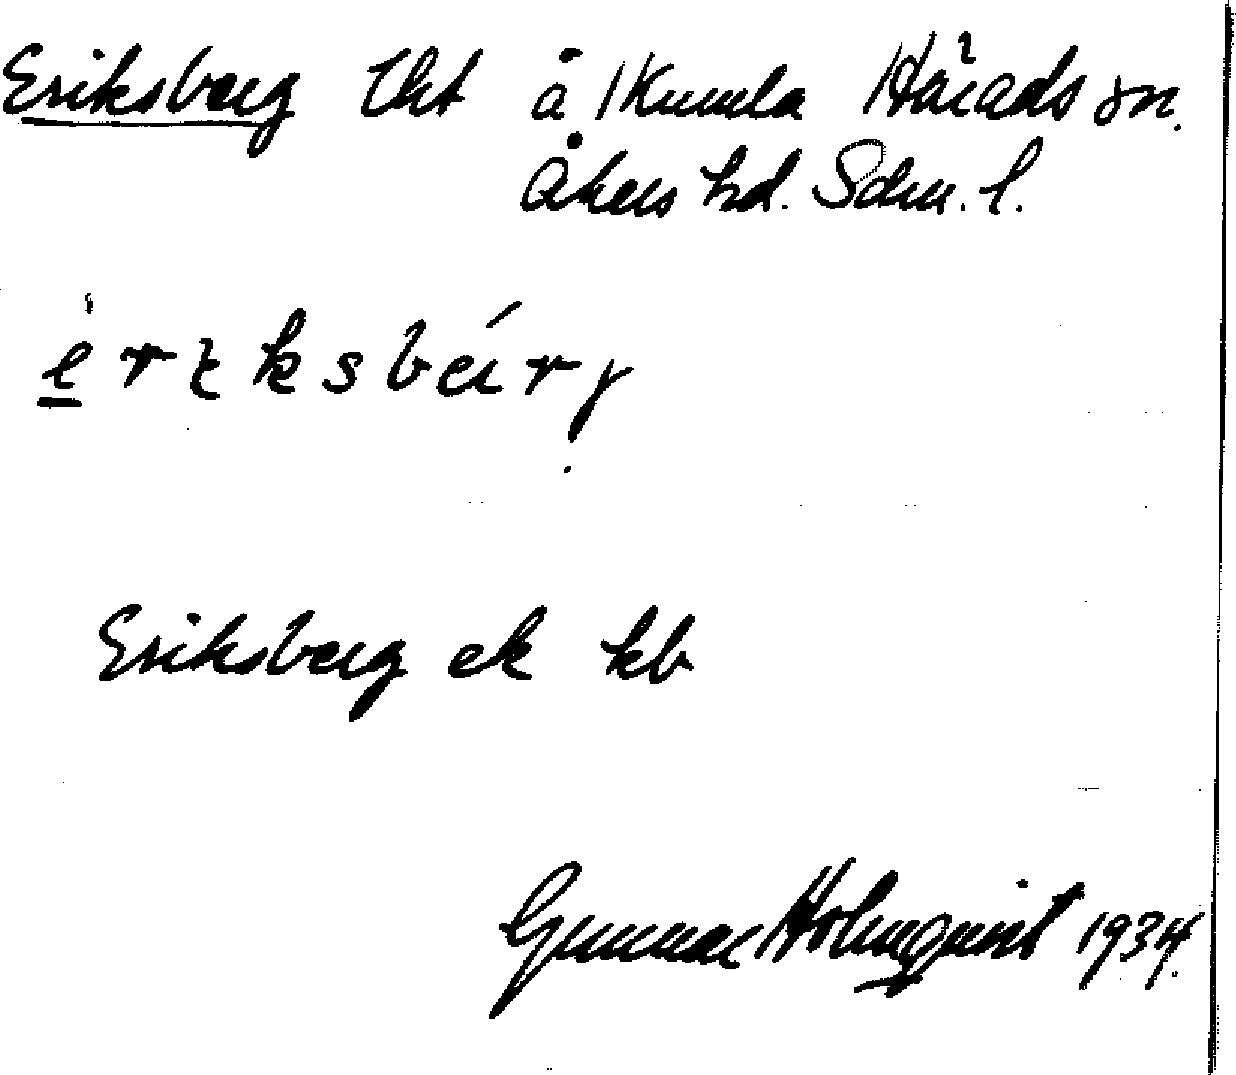 Eriksberg lht å Kumla Härads sn.
Åkers hd. Sdm. l.
Eriksberg ek kb
Gunnar Holmquist 1934.